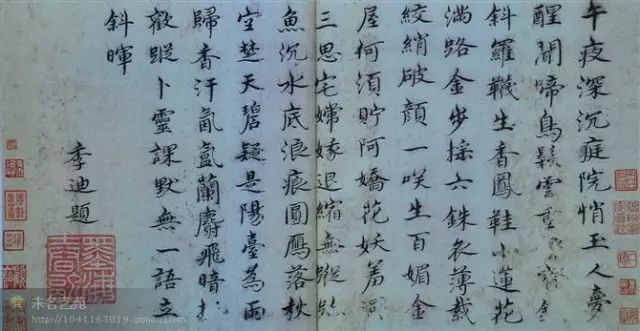 午夜深沉庭院悄玉人夢
醒聞啼鳥鬆雲
斜羅韈生香鳳鞋小蓮花
滿路金步採六銖衣薄裁
絞綃破顏一咲生百媚金
屋何須貯阿嬌花妖羞
三思宅嫦娥退縮無蹤
魚沉水底浪痕圓鴈落秋
空楚天碧疑是陽臺為雨
歸香汗氤氳蘭麝飛暗
歡蹤卜靈課默無一語立
斜暉
季迪題
木石艺苑
http://1041163019.qzone.qq.com